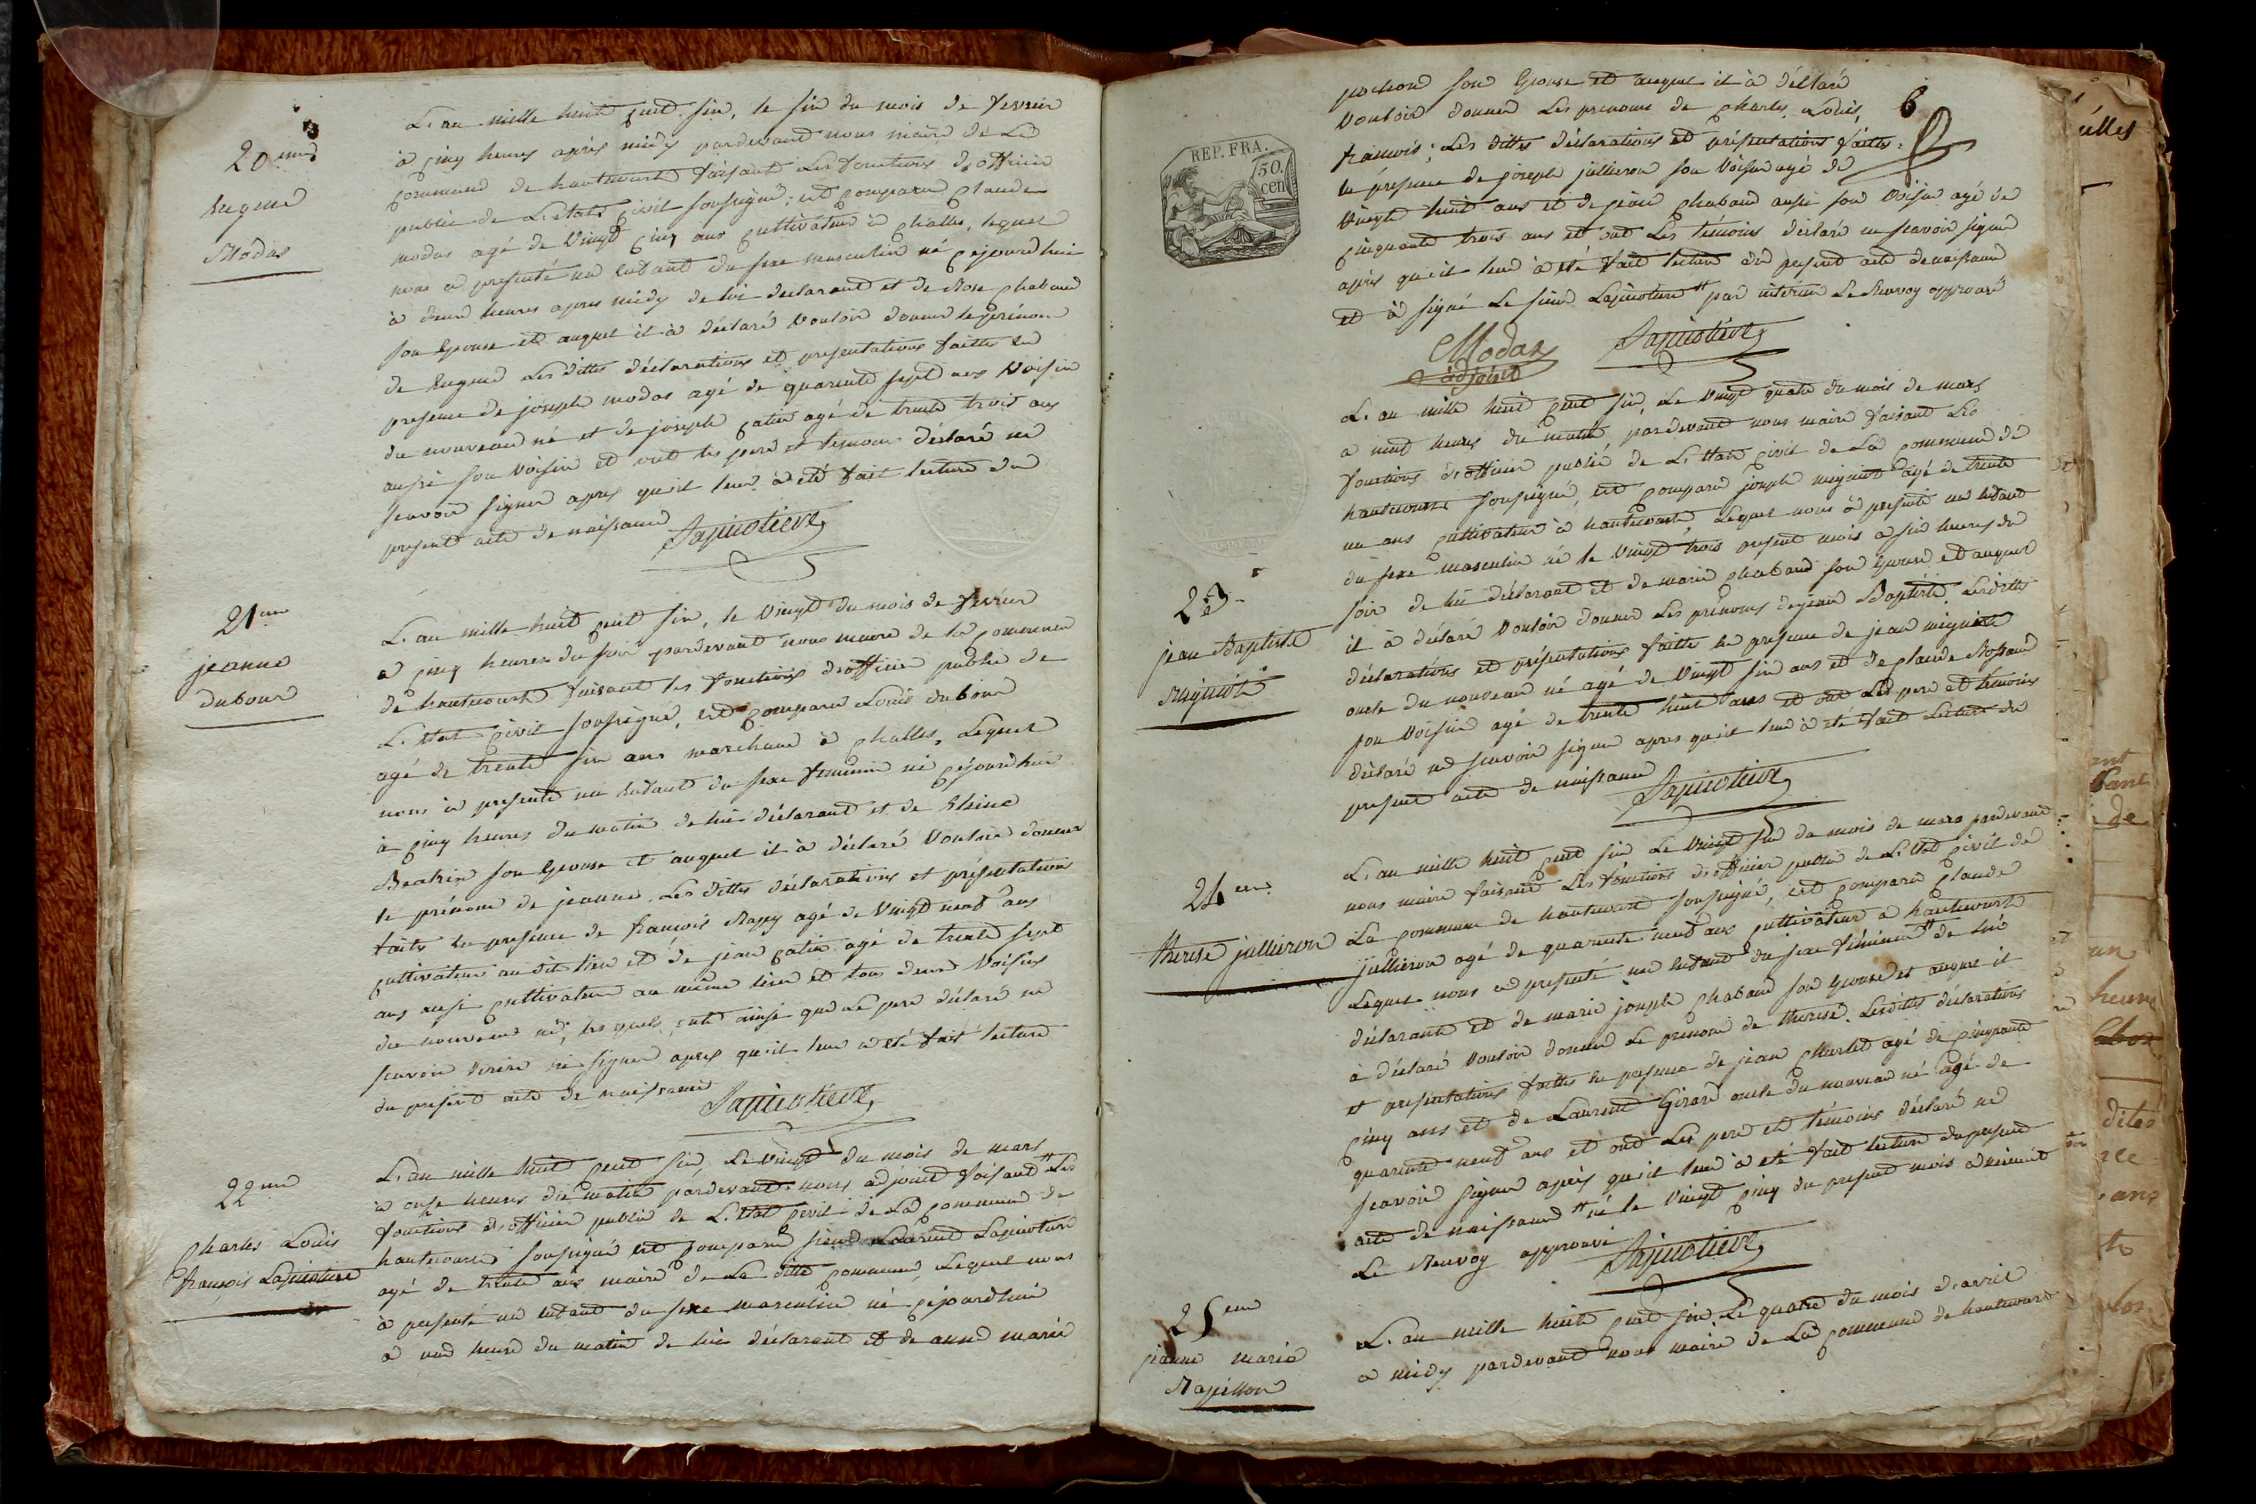 20eme
Eugene
Modas
L'an mille huit cent six, le six du mois de fevrier
à cinq heures après midy pardevant nous maire de La
commune de hautecourt faisant Les fonctions d'officier
public de L'etat civil soussigné; est comparu Claude
modas agé de Vingt cinq ans cultivateur à Challes, lequel
nous a presenté un Enfant du sexe masculin né cejourdhui
à deux heures apres midy de lui declarant et de Rose Chaband
son Epouse et auquel il à déclaré Vouloir donner le prénom
de Eugene Les dittes déclarations et presentations faittes En
presence de joseph modas agé de quarente sept ans Voisin
du nouveau né et de joseph catin agé de trente trois ans
aussi son Voisin et ont les pere et temoins déclaré ne
scavoir signer apres qu'il leur à eté fait lecture du
present acte de naissance
21eme
jeanne
dubour
L'an mille huit cent six, le Vingt du mois de fevrier
a cinq heures du soir pardevant nous maire de la commune
de hautecourt faisant les fonctions d'officier public de
L'etat civil soussigné, est comparu Louis dubour
agé de trente six ans marchand à Challes, Lequel
nous à presenté un Enfant du sexe feminin né cejourdhui
à cinq heures du matin de lui déclarant et de
son Epouse et auquel il à déclaré Vouloir donner
le prénom de jeanne. Les dittes déclarations et présentations
faites En presence de francois Rapy agé de Vingt neuf ans
cultivateur au dit lieu et de jean catin agé de trente sept
ans aussi cultivateur au même lieu et tous deux Voisins
du nouveau né; les quels ont ainsi que Le pere déclaré ne
scavoir Ecrire ni signer apres qu'il leur a eté fait lecture
du present acte de naissance
22eme
Charles Louis
françois Lapierre
L'an mille huit cent six, Le Vingt du mois de mars
à onze heures du matin pardevant nous adjoint faisant Les
fonctions d'officier public de L'etat civil de La commune de
hautecourt soussigné est comparu sieur Laurent
agé de trente ans maire de La ditte commune, Lequel nous
à presenté un Enfant du sexe masculin né cejourdhui
à une heure du matin de lui déclarant et de anne marie
6
son Epouse et auquel il à déclaré
Vouloir donner Les prenoms de Charles, Louis,
francois; Les dittes déclarations et présentations faittes
En présence de joseph jullieron son Voisin agé de
Vingt huit ans et de jean Chaband aussi son Voisin agé de
cinquante trois ans et ont Les témoins déclaré ne scavoir signer
après qu'il leur à eté fait lecture du present acte de naissance
et à signé Le sieur par interim Le Renvoy approuvé
Modas
adjoint
REP. FRA.
50.
cen
23
jean Baptiste
mignot
L'an mille huit cent six, Le Vingt quatre du mois de mars
a neuf heures du matin, pardevant nous maire faisant Les
fonctions d'officier public de L'etat civil de La commune de
hautecourt soussigné, est comparu joseph mignot agé de trente
un ans cultivateur à hautecourt, Lequel nous à presenté un Enfant
du sexe masculin né le Vingt trois present mois a six heures du
soir de lui déclarant et de marie Chaband son Epouse et auquel
il à déclaré Vouloir donner Les prénoms de jean Baptiste. Les dittes
déclarations et présentations faittes En presence de jean mignot
oncle du nouveau né agé de Vingt six ans et de Claude Rossand
son Voisin agé de trente huit ans et ont Les pere et temoins
déclaré ne scavoir signer apres qu'il leur à eté fait Lecture du
present acte de naissance
24eme
therese jullieron
L'an mille huit cent six Le Vingt six du mois de mars pardevant
nous maire faisant Les fonctions d'officier public de L'etat civil de
La commune de hautecourt soussigné, est comparu Claude
jullieron agé de quarente neuf ans cultivateur à hautecourt
Lequel nous a presenté un Enfant du sexe féminin de lui
déclarant et de marie joseph Chaband son Epouse et auquel il
à déclaré Vouloir donner Le prénom de therese. Lesdittes déclarations
et presentations faittes En presence de jean agé de cinquante
cinq ans et de Laurent Girard oncle du nouveau né agé de
quarente neuf ans et ont Les pere et témoins déclaré ne
scavoir signer après qu'il leur à eté fait lecture du present
acte de naissance né le Vingt cinq du present mois a
Le Renvoy approuvé
25eme
jeanne marie
Rapillon
L'an mille huit cent six, Le quatre du mois d'avril
a midy pardevant nous maire de La commune de hautecourt